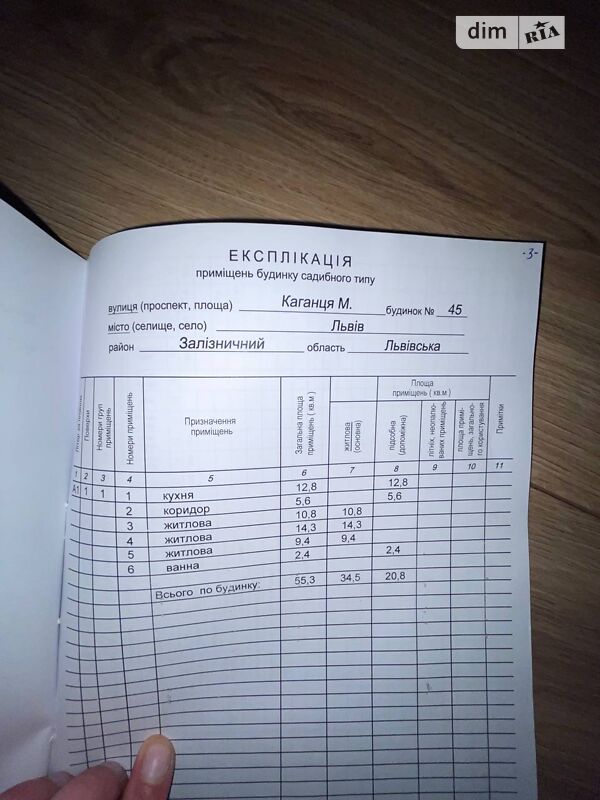 dim RIA
-3-
ЕКСПЛІКАЦІЯ
приміщень будинку садибного типу
вулиця (проспект, площа) Каганця М. будинок № 45
місто (селище, село) Львів
район Залізничний область Львівська
Поверхи
Номери груп приміщень
Номери приміщень
Призначення приміщень
Загальна площа приміщень ( кв.м )
Площа приміщень ( кв.м )
житлова (основна)
підсобна (допоміжна)
літніх, неопалюваних приміщень
площа приміщень, загального користування
Примітки
1 2 3 4 5 6 7 8 9 10 11
А1 1 1 1 кухня 12,8 12,8
2 коридор 5,6 5,6
3 житлова 10,8 10,8
4 житлова 14,3 14,3
5 житлова 9,4 9,4
6 ванна 2,4 2,4
Всього по будинку: 55,3 34,5 20,8